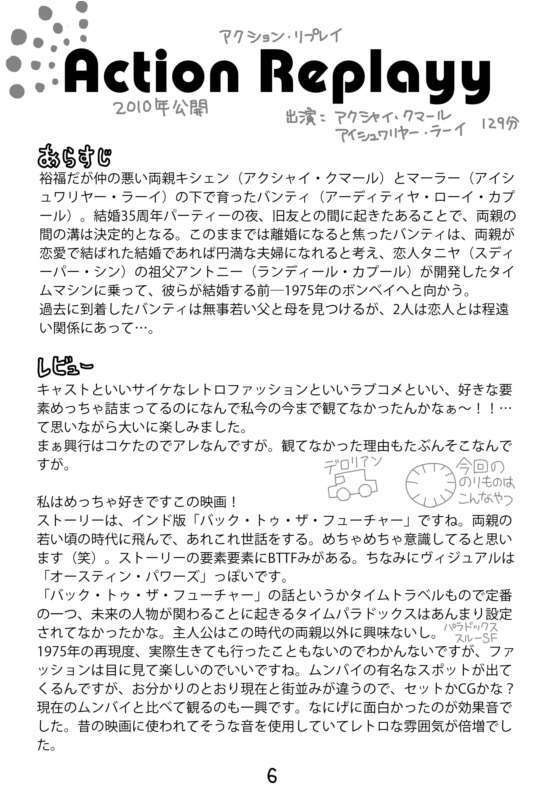 アクション・リプレイ
Action Replayy
2010年公開
出演： アクシャイ・クマール
アイシュワリヤー・ラーイ
129分
あらすじ
裕福だが仲の悪い両親キシェン（アクシャイ・クマール）とマーラー（アイシ
ュワリヤー・ラーイ）の下で育ったバンティ（アーディティヤ・ローイ・カプ
ール）。結婚35周年パーティーの夜、旧友との間に起きたあることで、両親の
間の溝は決定的となる。このままでは離婚になると焦ったバンティは、両親が
恋愛で結ばれた結婚であれば円満な夫婦になれると考え、恋人タニヤ（スディ
ーパー・シン）の祖父アントニー（ランディール・カプール）が開発したタイ
ムマシンに乗って、彼らが結婚する前─1975年のボンベイへと向かう。
過去に到着したバンティは無事若い父と母を見つけるが、2人は恋人とは程遠
い関係にあって…。
レビュー
キャストといいサイケなレトロファッションといいラブコメといい、好きな要
素めっちゃ詰まってるのになんで私今の今まで観てなかったんかなぁ～！！…
て思いながら大いに楽しみました。
まぁ興行はコケたのでアレなんですが。観てなかった理由もたぶんそこなんで
すが。
デロリアン
今回の
のりものは
こんなやつ
私はめっちゃ好きですこの映画！
ストーリーは、インド版「バック・トゥ・ザ・フューチャー」ですね。両親の
若い頃の時代に飛んで、あれこれ世話をする。めちゃめちゃ意識してると思い
ます（笑）。ストーリーの要素要素にBTTFみがある。ちなみにヴィジュアルは
「オースティン・パワーズ」っぽいです。
「バック・トゥ・ザ・フューチャー」の話というかタイムトラベルもので定番
の一つ、未来の人物が関わることに起きるタイムパラドックスはあんまり設定
されてなかったかな。主人公はこの時代の両親以外に興味ないし。
パラドックス
スルーSF
1975年の再現度、実際生きても行ったこともないのでわかんないですが、ファ
ッションは目に見て楽しいのでいいですね。ムンバイの有名なスポットが出て
くるんですが、お分かりのとおり現在と街並みが違うので、セットかCGかな？
現在のムンバイと比べて観るのも一興です。なにげに面白かったのが効果音で
した。昔の映画に使われてそうな音を使用していてレトロな雰囲気が倍増でし
た。
6